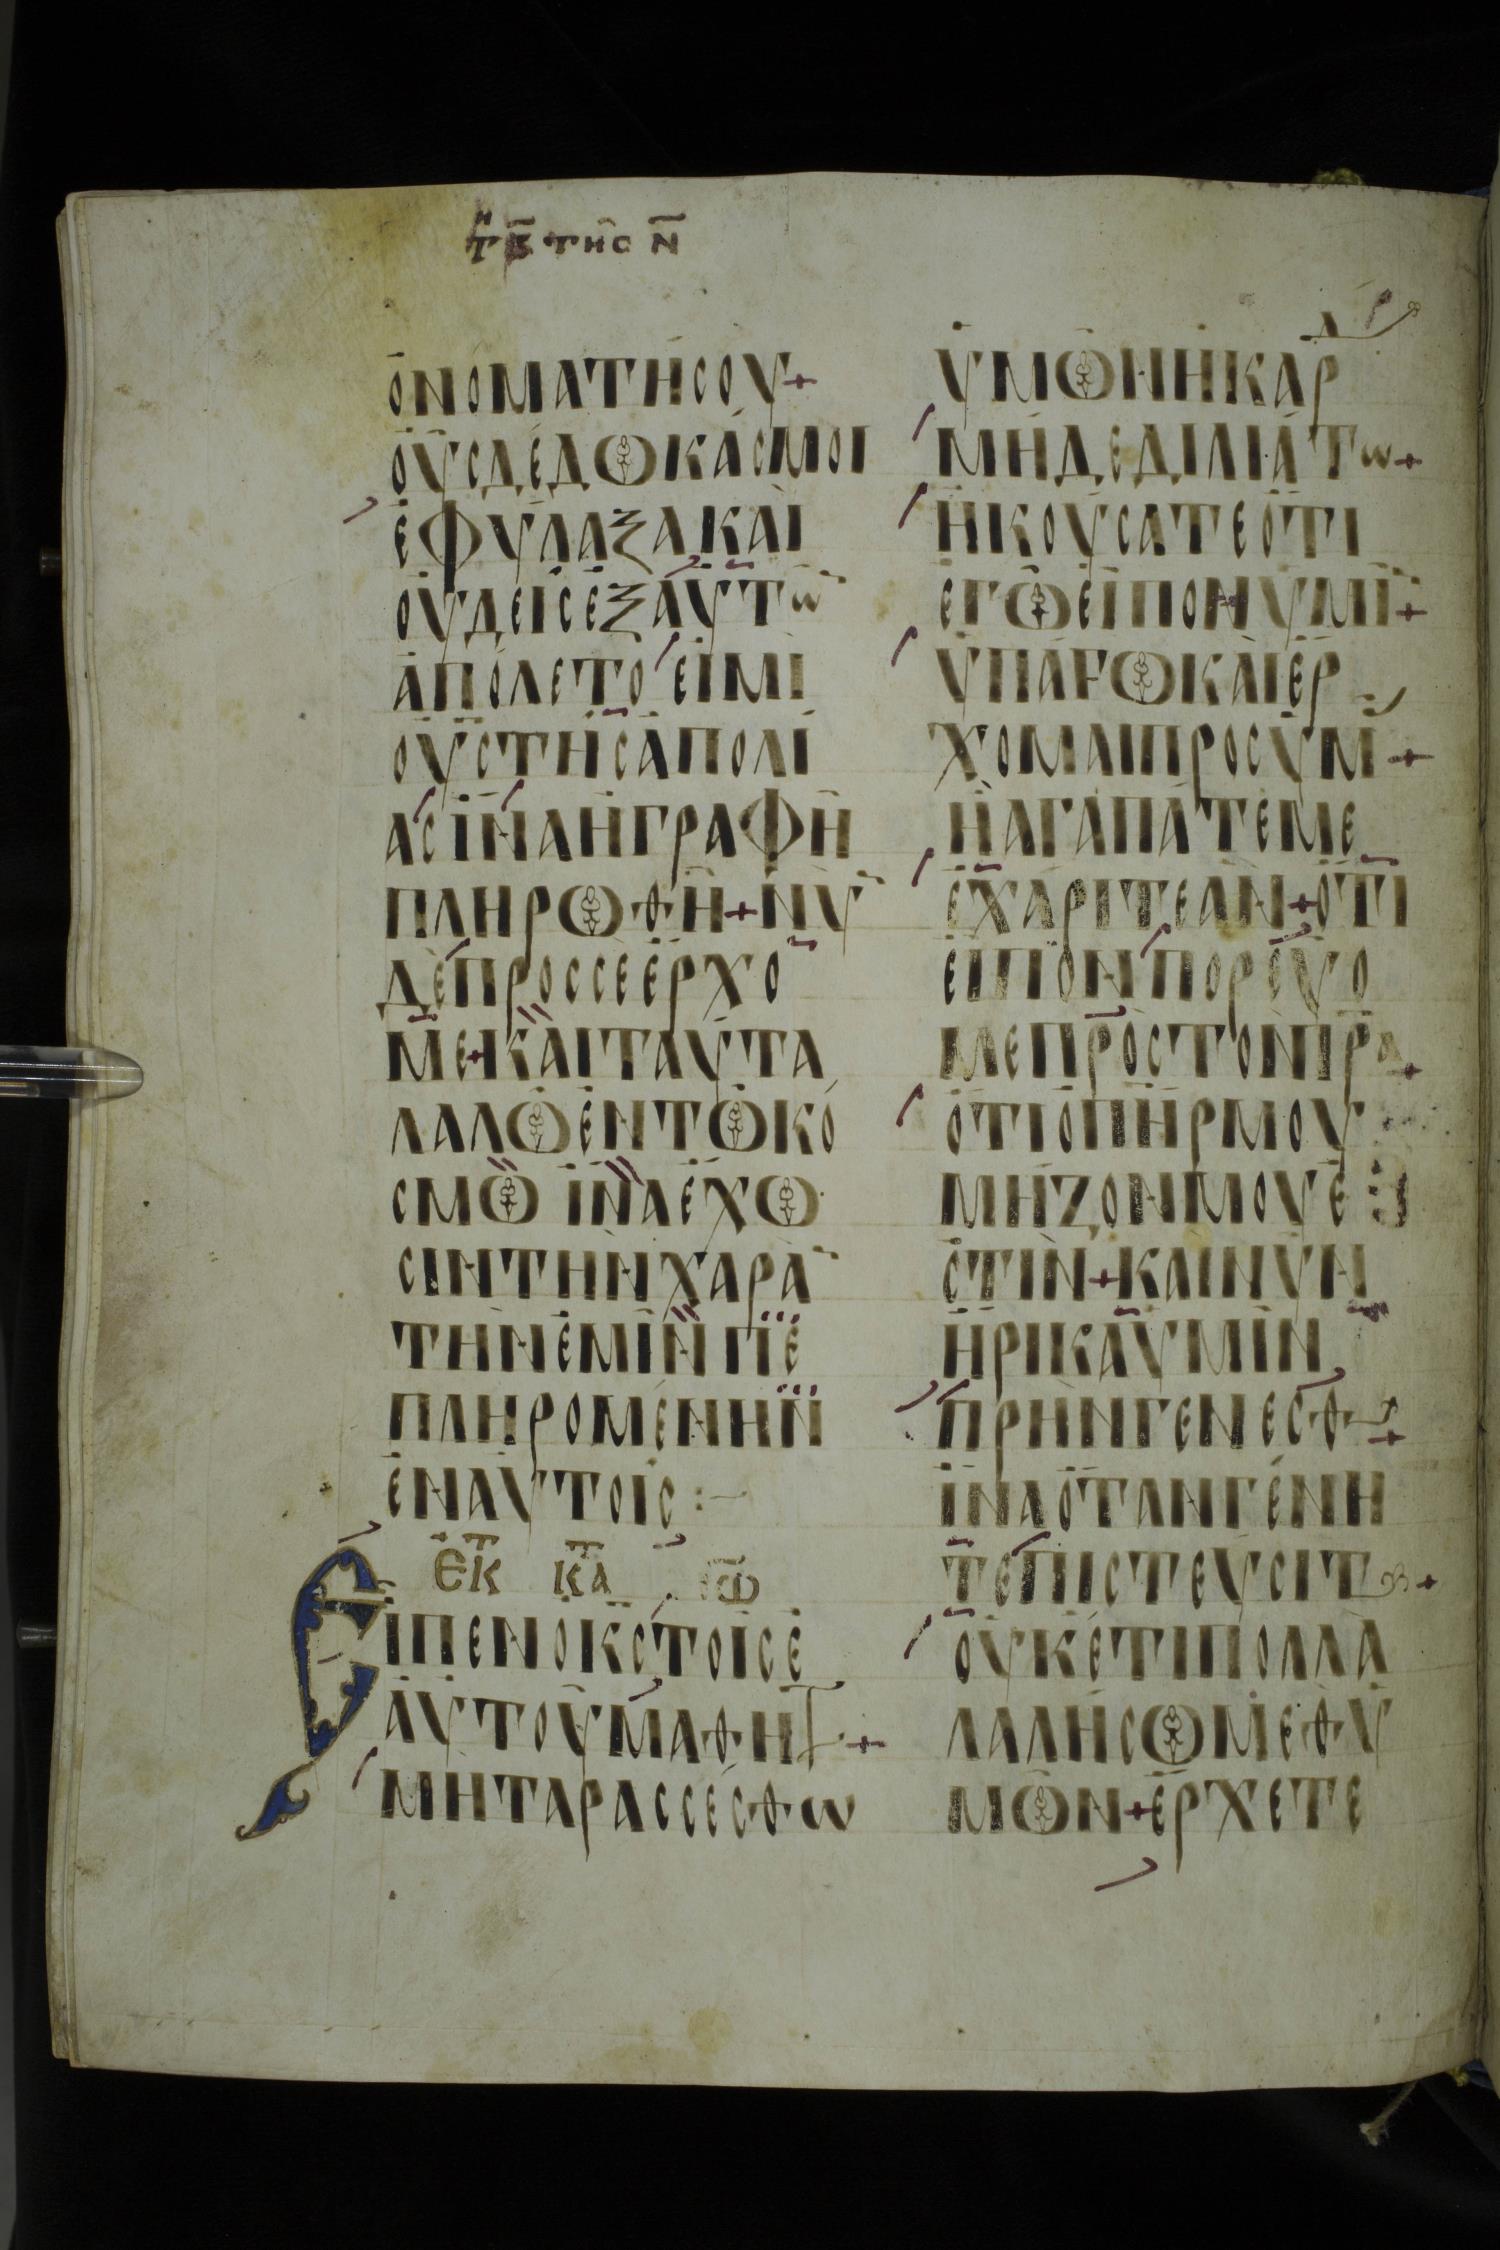 τη Γ̅ τησ Ν̅
ΟΝΟΜΑΤΗCΟΥ+
ΟΥCΔΕΔΩΚΑCΜΟΙ
ΕΦΥΛΑΞΑΚΑΙ
ΟΥΔΕΙCΕΞΑΥΤω
ΑΠΟΛΕΤΟΕΙΜΙ
ΟΥCΤΗCΑΠΟΛΙ
ΑCΙΝΑΗΓΡΑΦΗ
ΠΛΗΡΩΘΗ+ΝΥ
ΔΕΠΡΟCCΕΕΡΧΟ
ΜΕ+ΚΑΙΤΑΥΤΑ
ΛΑΛΩΕΝΤΩΚΟ
CΜΩ ΙΝΑΕΧΩ
CΙΝΤΗΝΧΑΡΑ
ΤΗΝΕΜΙΝΠΕ
ΠΛΗΡΟΜΕΝΗΝ
ΕΝΑΥΤΟΙC :–
ΕΚ ΚΑΤ ΙΩ
ΕΙΠΕΝΟΚ̅C̅ΤΟΙCΕ
ΑΥΤΟΥΜΑΘΗΤ +
ΜΗΤΑΡΑCCΕCΘω
ΥΜΩΝΗΚΑΡ
ΜΗΔΕΔΙΛΙΑΤω+
ΗΚΟΥCΑΤΕΟΤΙ
ΕΓΩΕΙΠΟΝΥΜΙ+
ΥΠΑΓΩΚΑΙΕΡ
ΧΟΜΑΙΠΡΟCΥΜ+
ΗΑΓΑΠΑΤΕΜΕ
ΕΧΑΡΙΤΕΑΝ+ΟΤΙ
ΕΙΠΟΝΠΟΡΕΥΟ
ΜΕΠΡΟCΤΟΝΠ̅Ρ̅Α+
ΟΤΙΟΠ̅Η̅ΡΜΟΥ
ΜΗΖΟΝΜΟΥΕ
CΤΙΝ+ΚΑΙΝΥΝ
ΗΡΙΚΑΥΜΙΝ
ΠΡΗΝΓΕΝΕCΘ+
ΙΝΑΟΤΑΝΓΕΝΗ
ΤΕΠΙCΤΕΥCΙΤ+
ΟΥΚΕΤΙΠΟΛΛΑ
ΛΑΛΗCΩΜΕΘΥ
ΜΩΝ+ΕΡΧΕΤΕ